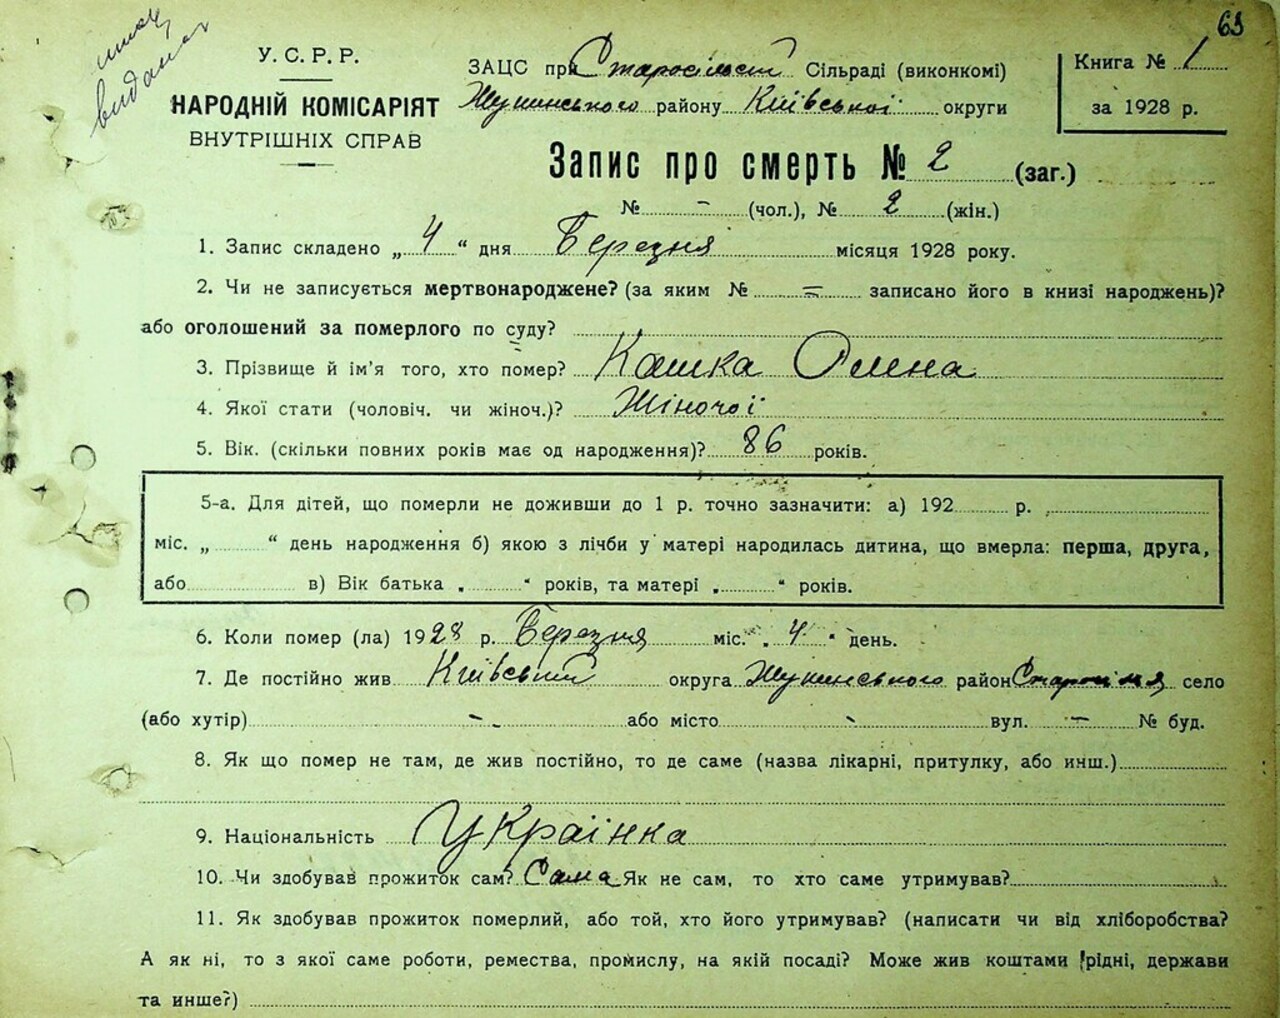 63
видано
У.С.Р.Р.
НАРОДНІЙ КОМІСАРІЯТ
ВНУТРІШНІХ СПРАВ
ЗАЦС при Старосільск Сільраді (виконкомі)
району Київської округи
Книга № 1
за 1928 р.
Запис про смерть № 2 (заг.)
№ - (чол.), № 2 (жін.)
1. Запис складено „ 4 “ дня Березня місяця 1928 року.
2. Чи не записується мертвонароджене? (за яким № = записано його в книзі народжень)?
або оголошений за померлого по суду?
3. Прізвище й ім'я того, хто помер? Кашка Олена
4. Якої стати (чоловіч. чи жіноч.)? Жіночої
5. Вік. (скільки повних років має од народження)? 86 років.
5-а. Для дітей, що померли не доживши до 1 р. точно зазначити: а) 192 р.
міс. „ “ день народження б) якою з лічби у матері народилась дитина, що вмерла: перша, друга,
або в) Вік батька „ “ років, та матері „ “ років.
6. Коли помер (ла) 1928 р. Березня міс. „ 4 “ день.
7. Де постійно жив округа район село
(або хутір) - або місто - вул. - № буд.
8. Як що помер не там, де жив постійно, то де саме (назва лікарні, притулку, або инш.)
9. Національність Українка
10. Чи здобував прожиток сам? Сама Як не сам, то хто саме утримував?
11. Як здобував прожиток померлий, або той, хто його утримував? (написати чи від хліборобства?
А як ні, то з якої саме роботи, ремества, промислу, на якій посаді? Може жив коштами рідні, держави
та инше?)